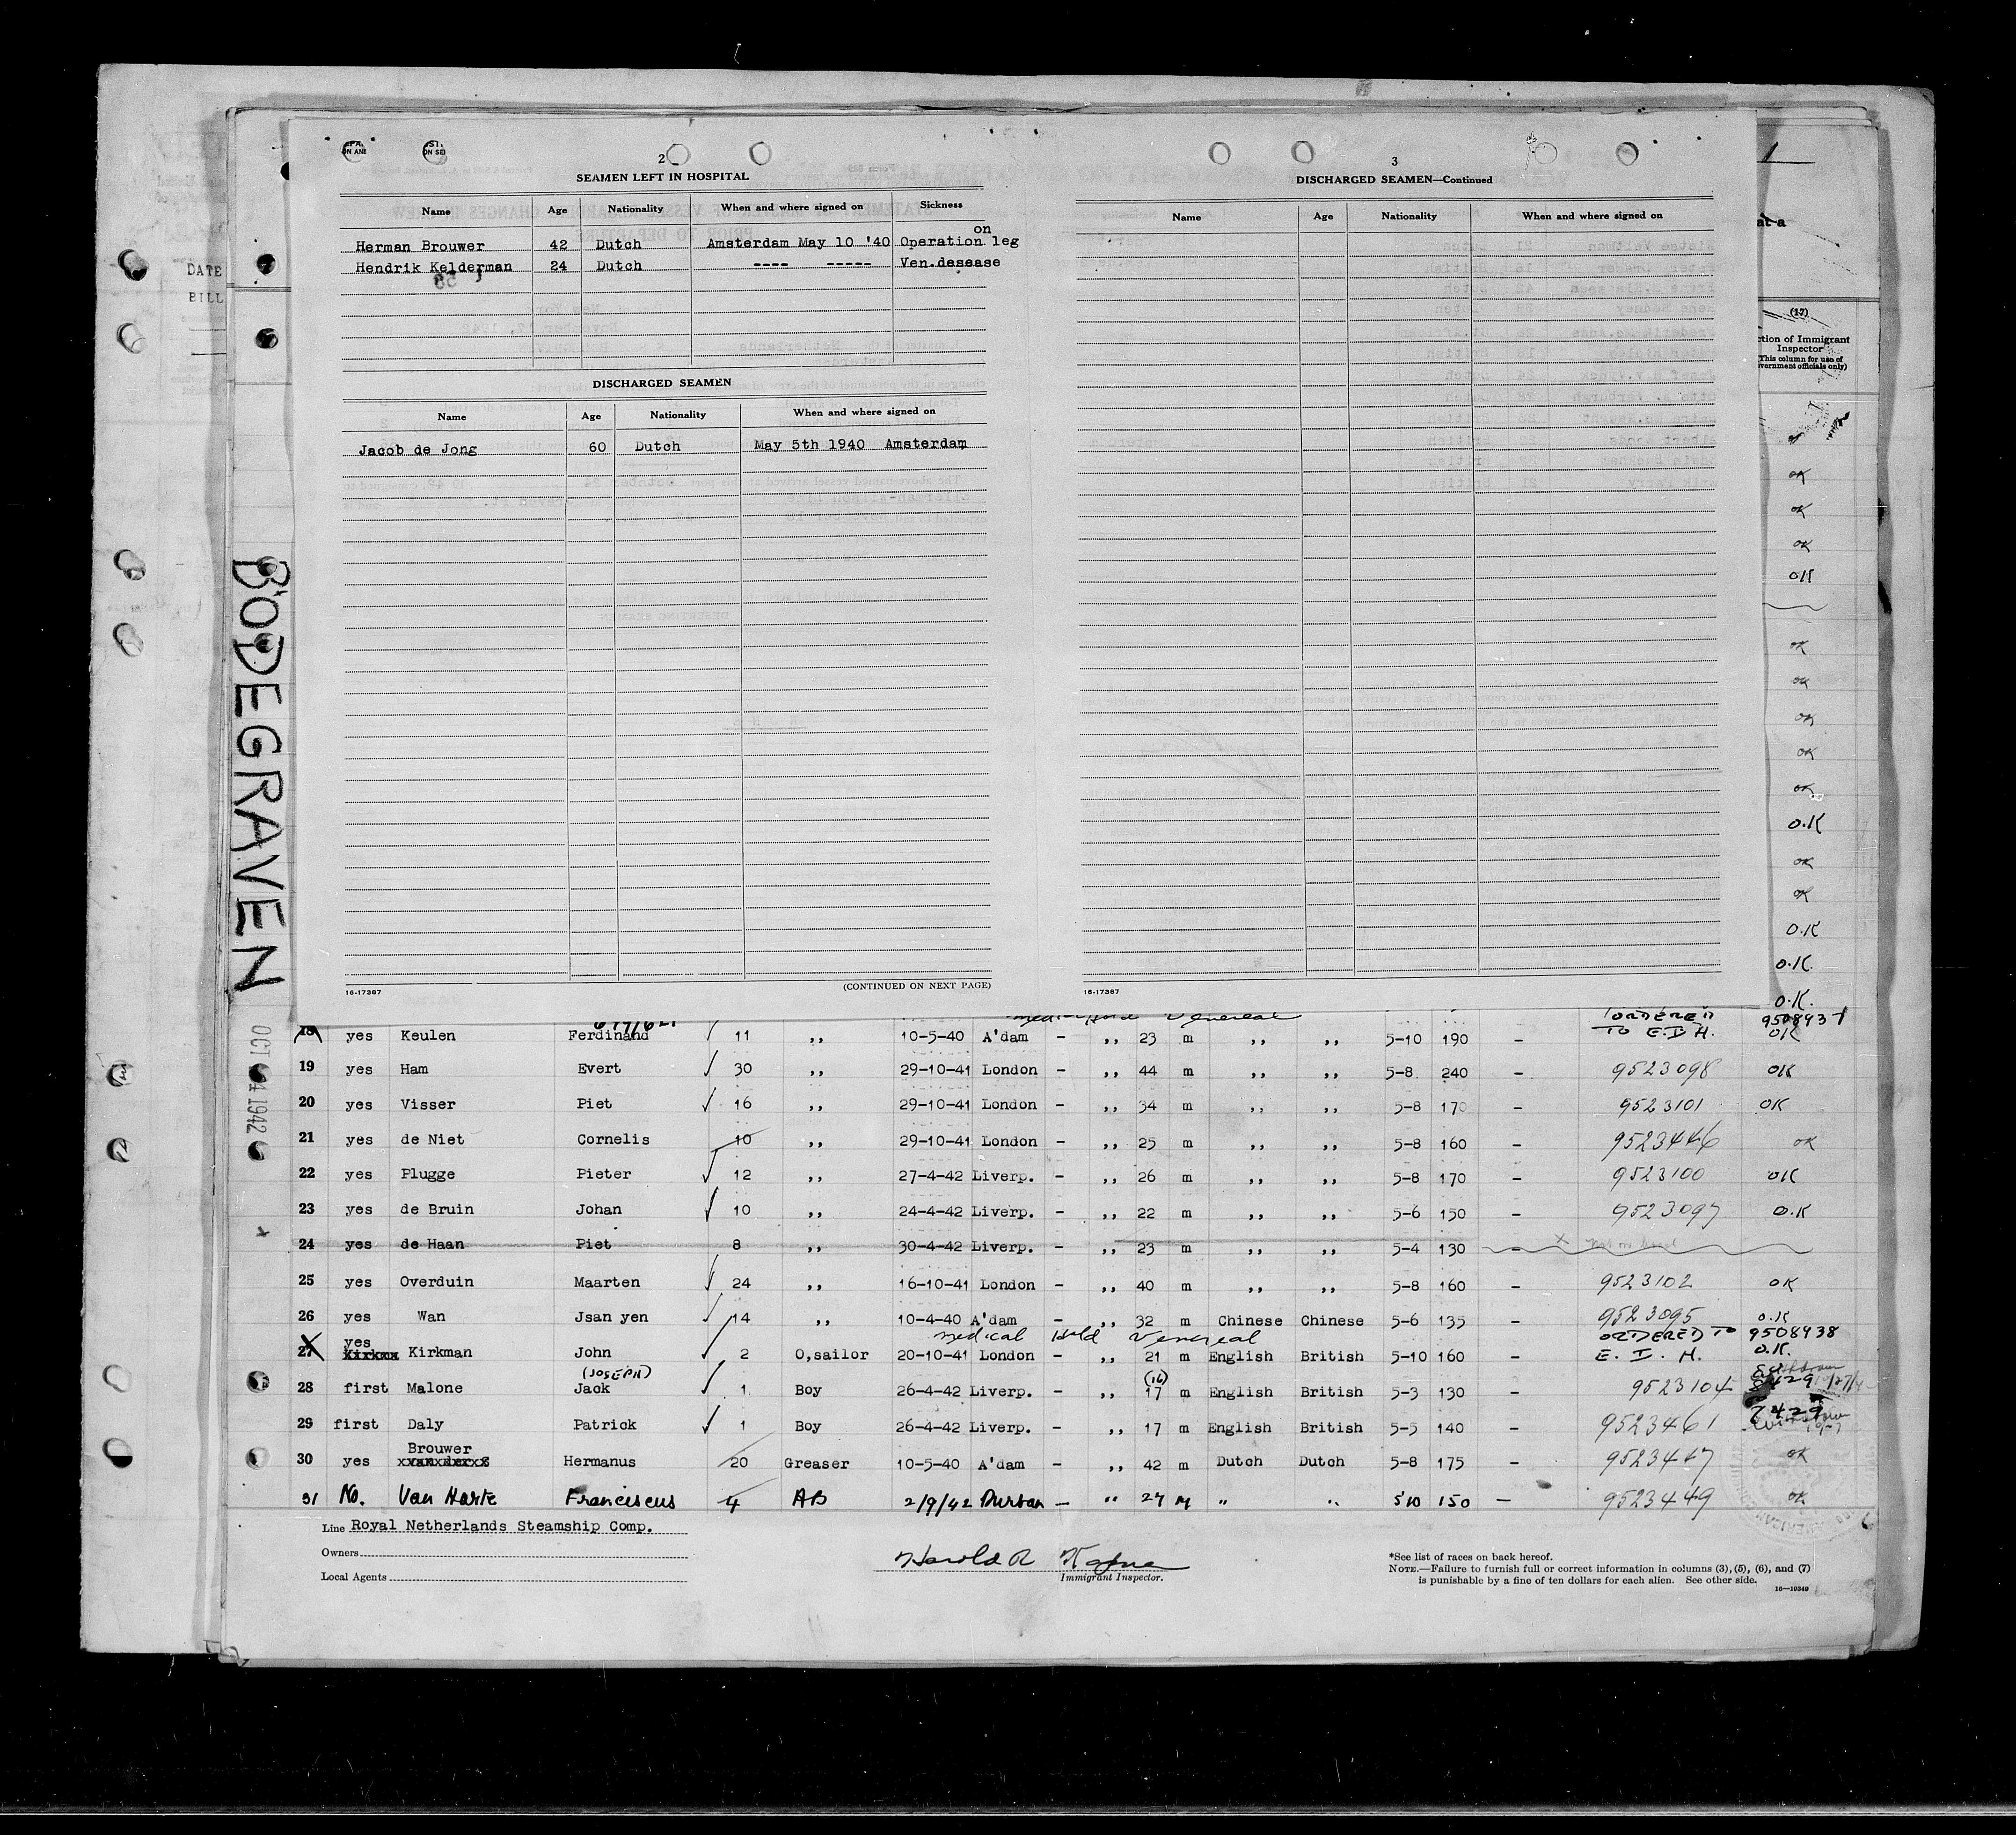 2
SEAMEN LEFT IN HOSPITAL
Name Age Nationality When and where signed on Sickness
Herman Brouwer 42 Dutch Amsterdam May 10 '40 Operation on leg
Hendrik Kelderman 24 Dutch ---- ----- Ven.desease
DISCHARGED SEAMEN
Name Age Nationality When and where signed on
Jacob de Jong 60 Dutch May 5th 1940 Amsterdam
16-17387 (CONTINUED ON NEXT PAGE)
3
DISCHARGED SEAMEN—Continued
Name Age Nationality When and where signed on
16-17387
DATE
BILL
BODEGRAVEN
1942
1
at a
(17)
ction of Immigrant
Inspector
(This column for use of
vernment officials only)
OK
OK
OK
OK
OK
OK
OK
OK
OK
O.K
OK
OK
O.K
O.K.
O.K.
Medical Hold Venereal ORDERED TO E.I.H. 9508937
18 yes Keulen Ferdinand 11 ,, 10-5-40 A'dam - ,, 23 m ,, ,, 5-10 190 - OK
19 yes Ham Evert 30 ,, 29-10-41 London - ,, 44 m ,, ,, 5-8 240 - 9523098 OK
20 yes Visser Piet 16 ,, 29-10-41 London - ,, 34 m ,, ,, 5-8 170 - 9523101 OK
21 yes de Niet Cornelis 10 ,, 29-10-41 London - ,, 25 m ,, ,, 5-8 160 - 9523446 OK
22 yes Plugge Pieter 12 ,, 27-4-42 Liverp. - ,, 26 m ,, ,, 5-8 170 - 9523100 OK
23 yes de Bruin Johan 10 ,, 24-4-42 Liverp. - ,, 22 m ,, ,, 5-6 150 - 9523097 O.K
24 yes de Haan Piet 8 ,, 30-4-42 Liverp. - ,, 23 m ,, ,, 5-4 130 -
25 yes Overduin Maarten 24 ,, 16-10-41 London - ,, 40 m ,, ,, 5-8 160 - 9523102 OK
26 yes Wan Jsan yen 14 ,, 10-4-40 A'dam - ,, 32 m Chinese Chinese 5-6 135 - 9523095 O.K
Medical Hold Venereal ORDERED TO E.I.H. 9508938
27 yes Kirkman John 2 O,sailor 20-10-41 London - ,, 21 m English British 5-10 160 - O.K.
(JOSEPH) (16)
28 first Malone Jack 1 Boy 26-4-42 Liverp. - ,, 17 m English British 5-3 130 - 9523104
29 first Daly Patrick 1 Boy 26-4-42 Liverp. - ,, 17 m English British 5-5 140 - 9523461
30 yes Brouwer Hermanus 20 Greaser 10-5-40 A'dam - ,, 42 m Dutch Dutch 5-8 175 - 9523447 OK
31 No. Van Harte Franciscus 4 AB 2/9/42 Durban - " 27 M " " 5'10 150 - 9523449 OK
Line Royal Netherlands Steamship Comp.
Owners
Local Agents
Harold R
Immigrant Inspector.
*See list of races on back hereof.
NOTE.—Failure to furnish full or correct information in columns (3), (5), (6), and (7)
is punishable by a fine of ten dollars for each alien. See other side.
16—19349